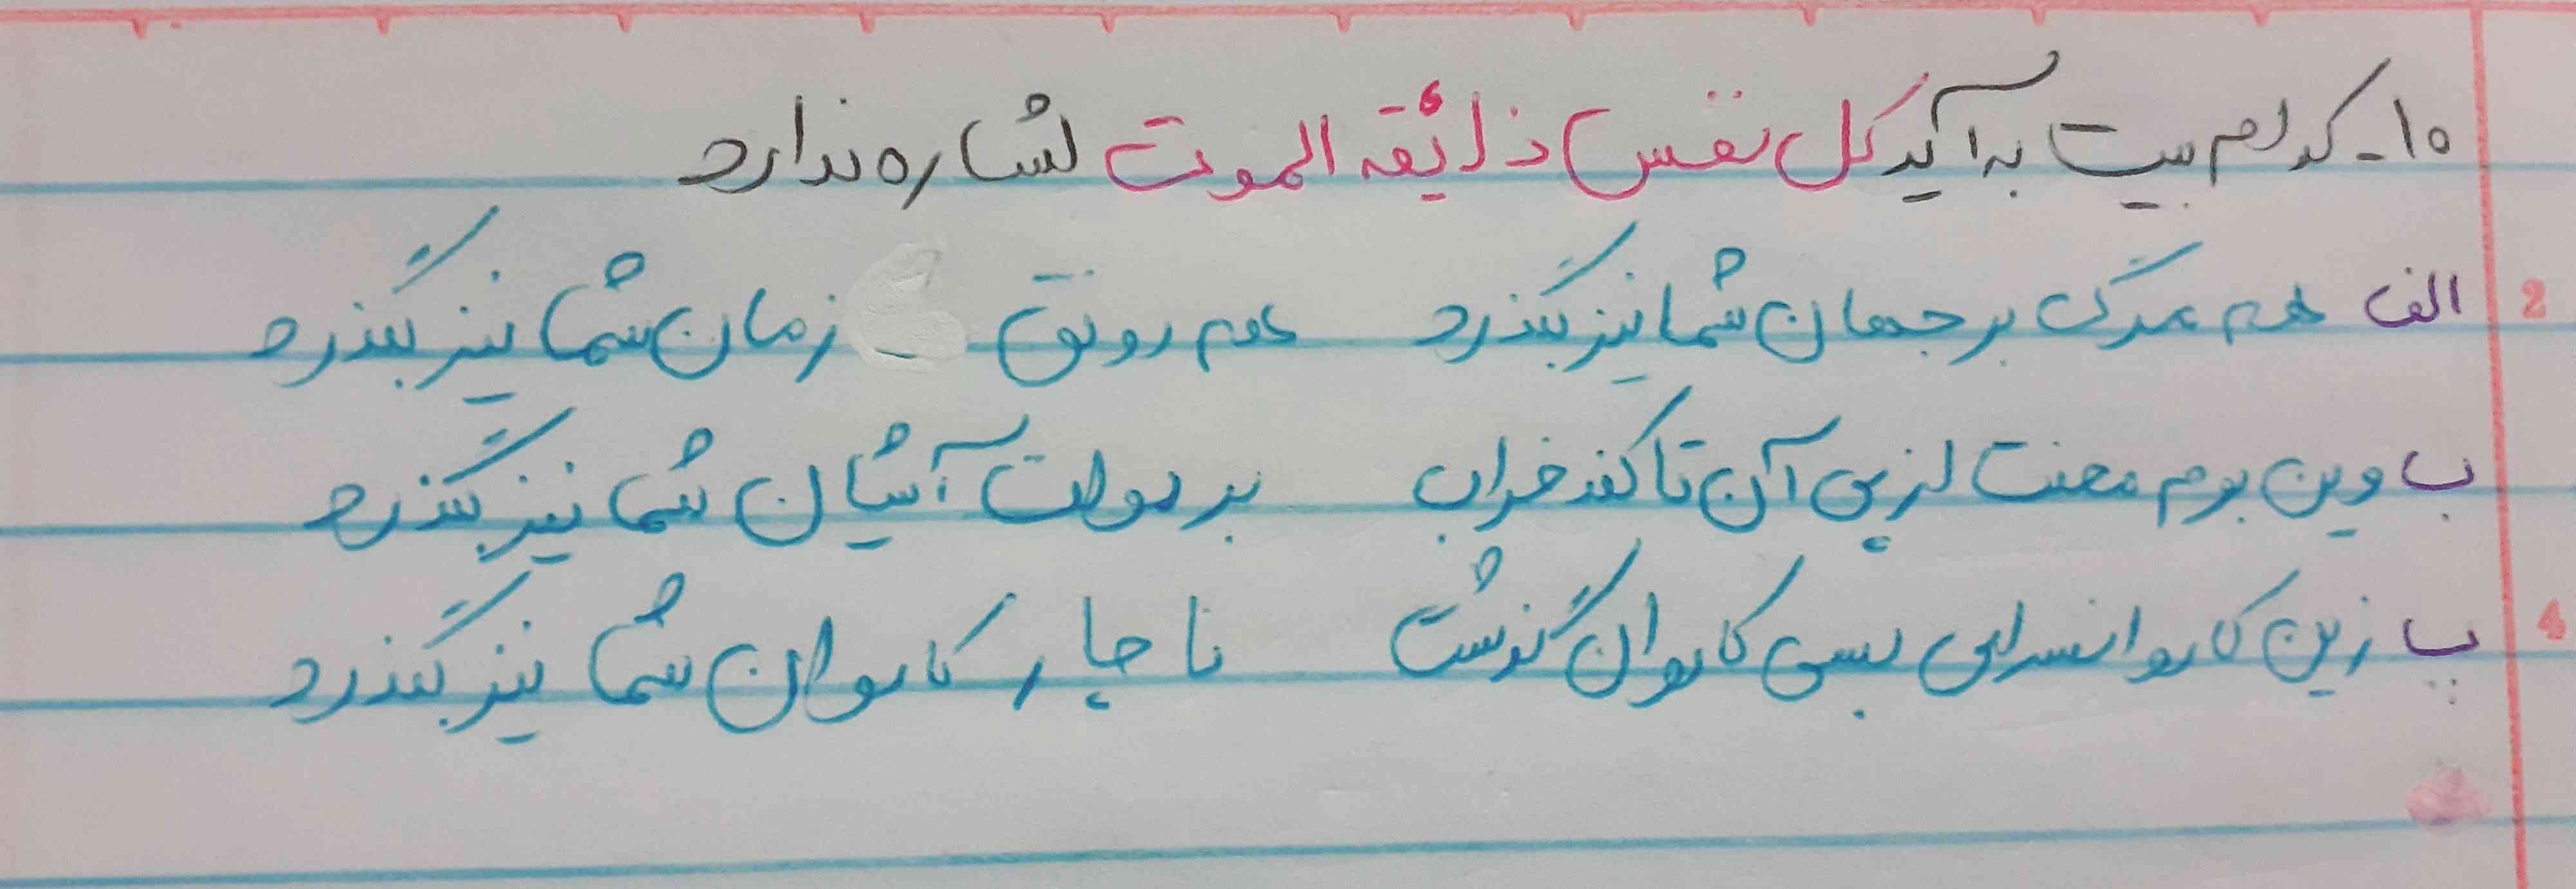 ۱۰- کدام بیت به آیه کل نفس ذائقه الموت اشاره ندارد
2 الف هم مرگ بر جهان شما نیز بگذرد هم رونق زمان شما نیز بگذرد
ب وین بوم محنت از پی آن تا کند خراب بر دولت آشیان شما نیز بگذرد
4 پ زین کاروانسرای بسی کاروان گذشت ناچار کاروان شما نیز بگذرد